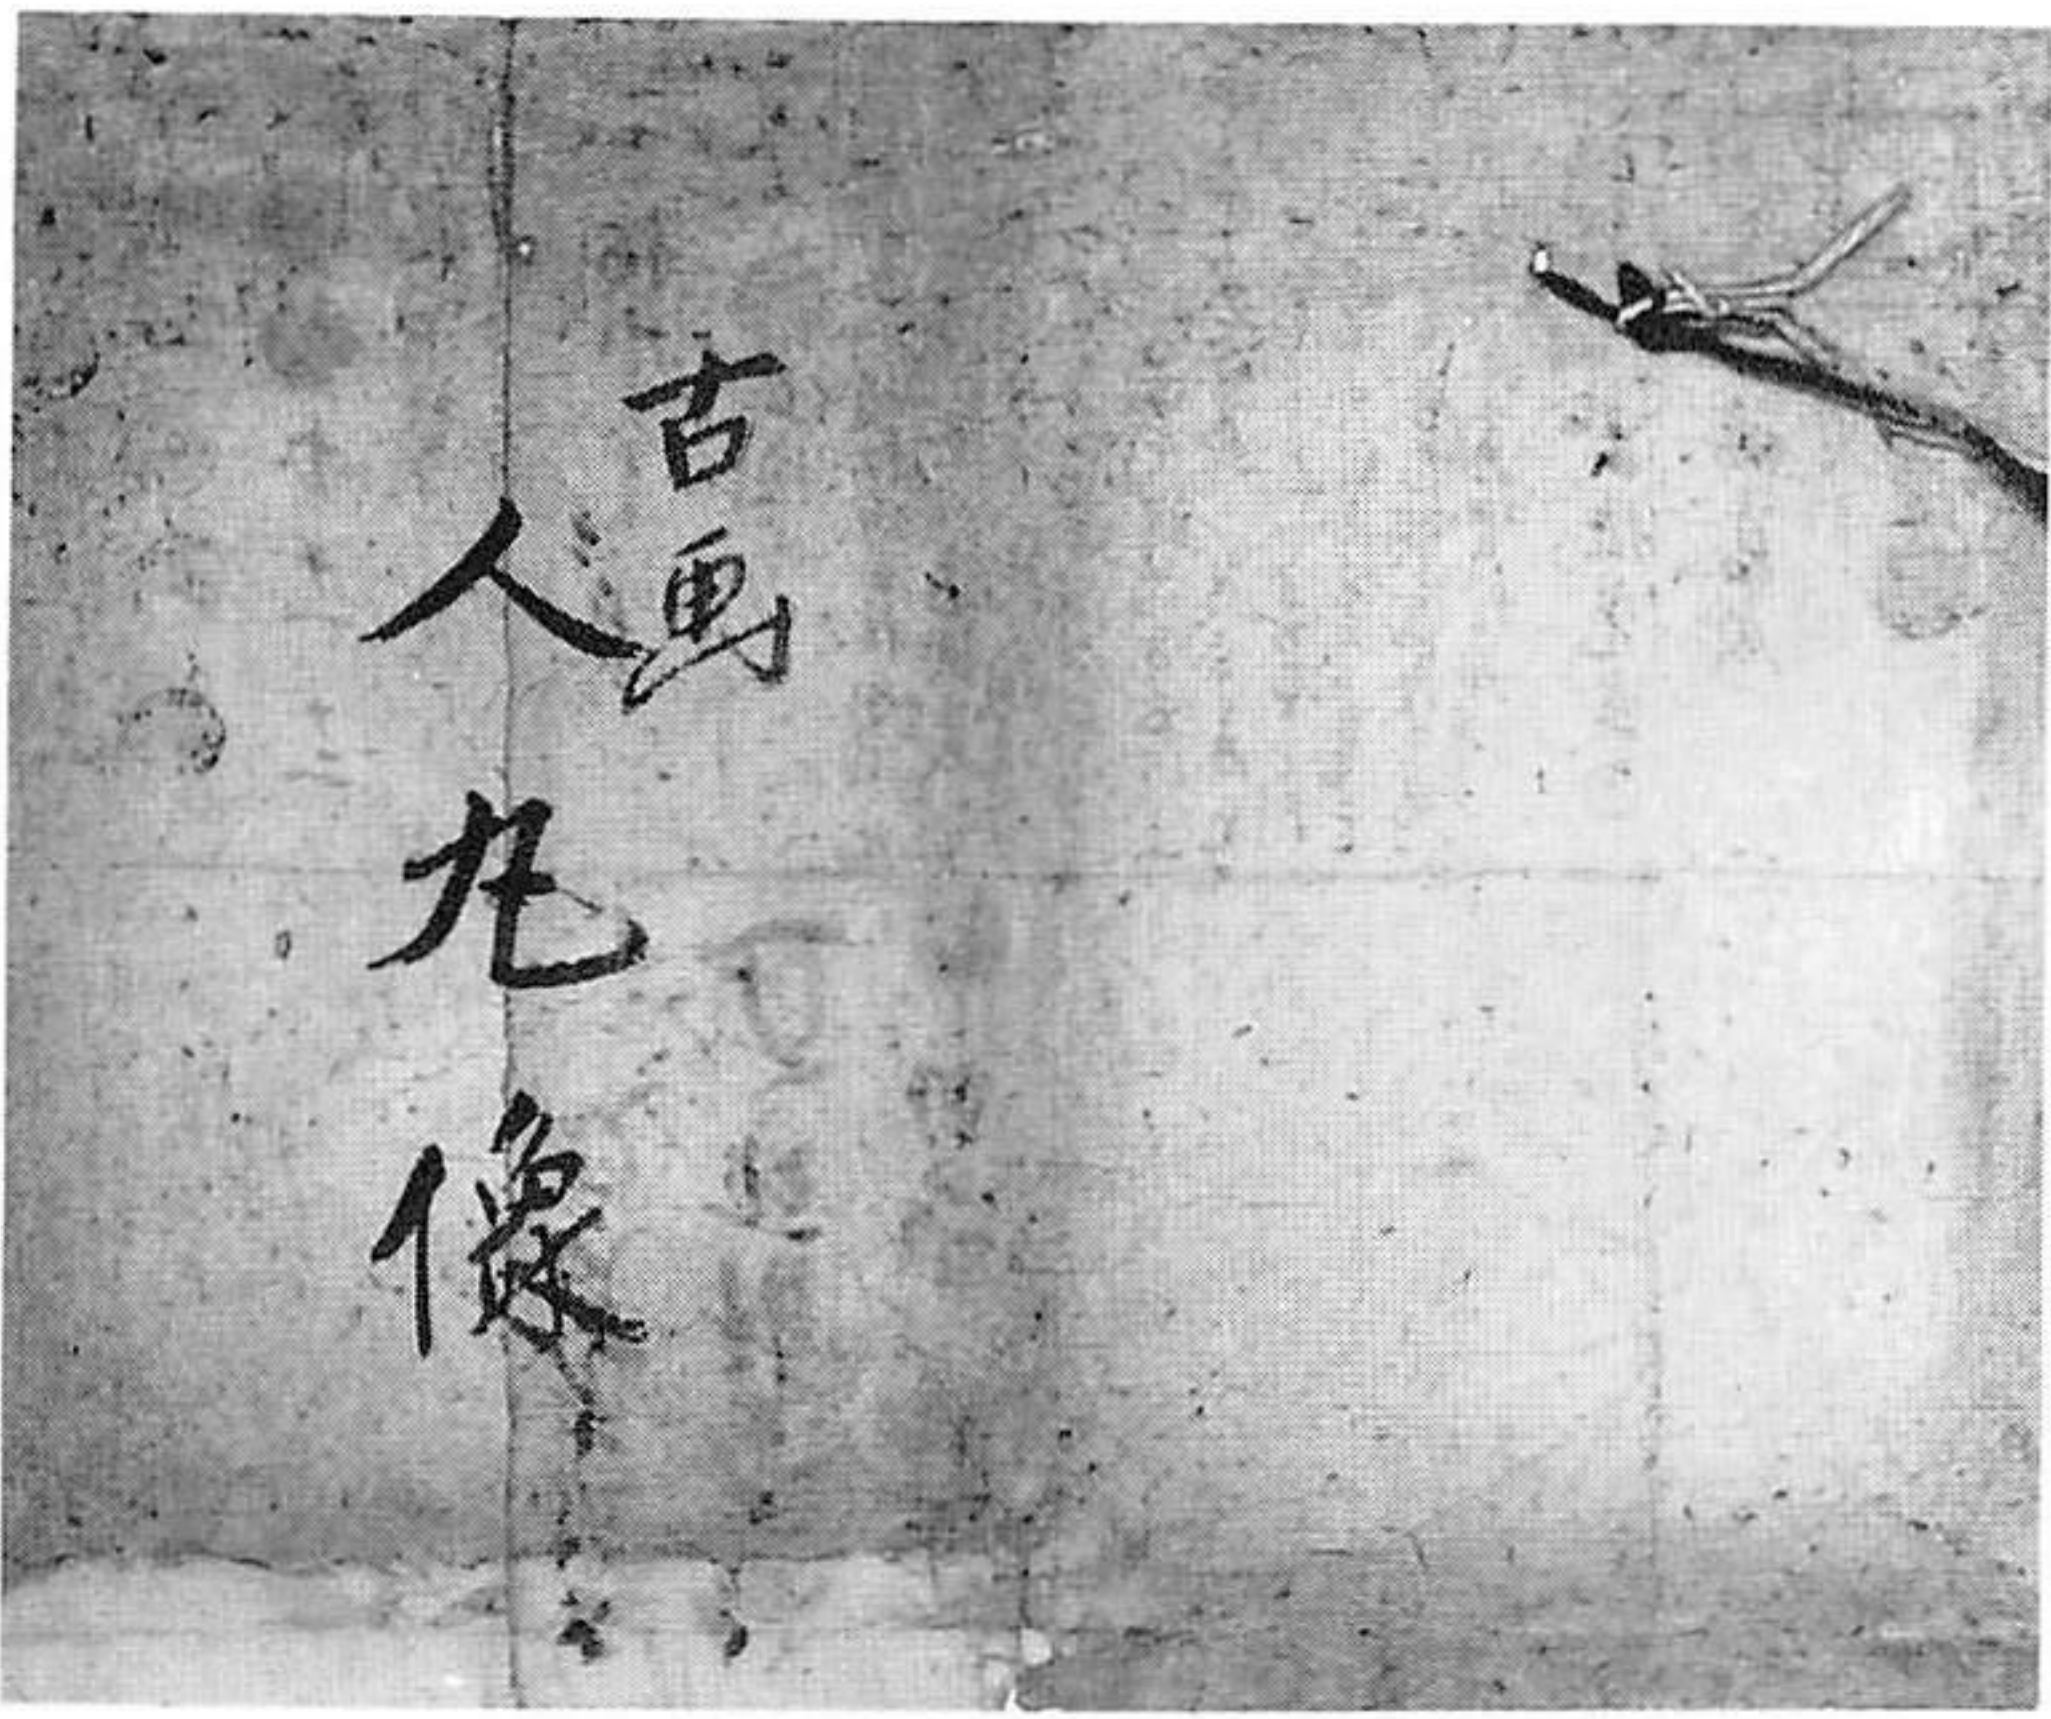 古画
人丸像